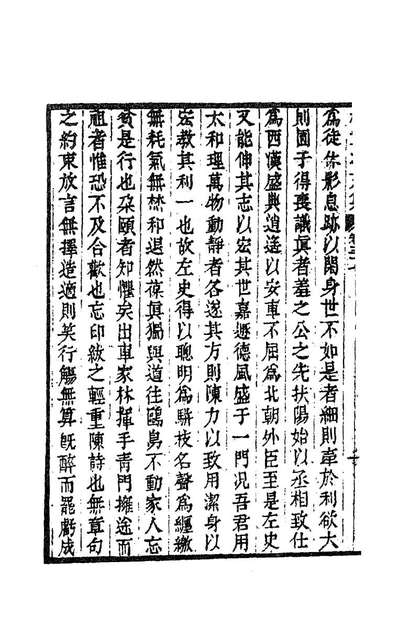 為徒休影息跡以閑身世不如是者細則牽於利欲大
則囿于得喪議眞者羞之公之先扶陽始以丞相致仕
為西漢盛典逍遙以安車不屈為北朝外臣至是左史
又能伸其志以宏其世嘉遯德風盛于一門況吾君用
太和理萬物動靜者各遂其方則陳力以致用潔身以
宏教其利一也故左史得以聰明為駢枝名聲為纏繳
無耗氣無焚和退然葆眞獨與道往鷗鳥不動家人忘
貧是行也朶頤者知懼矣出車家林揮手青門擁途而
祖者惟恐不及合歡也忘印紱之輕重陳詩也無章句
之約束放言無擇造適則笑行觴無算旣醉而罷虧成